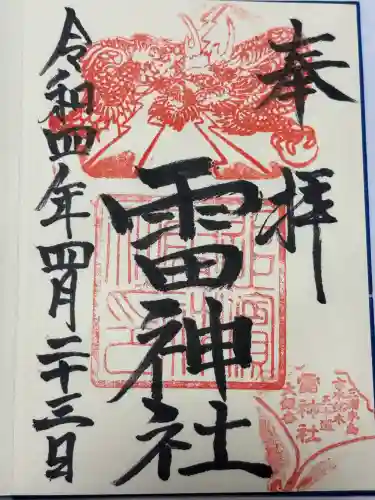 奉拝
雷神社
令和四年四月二十三日
雷神社